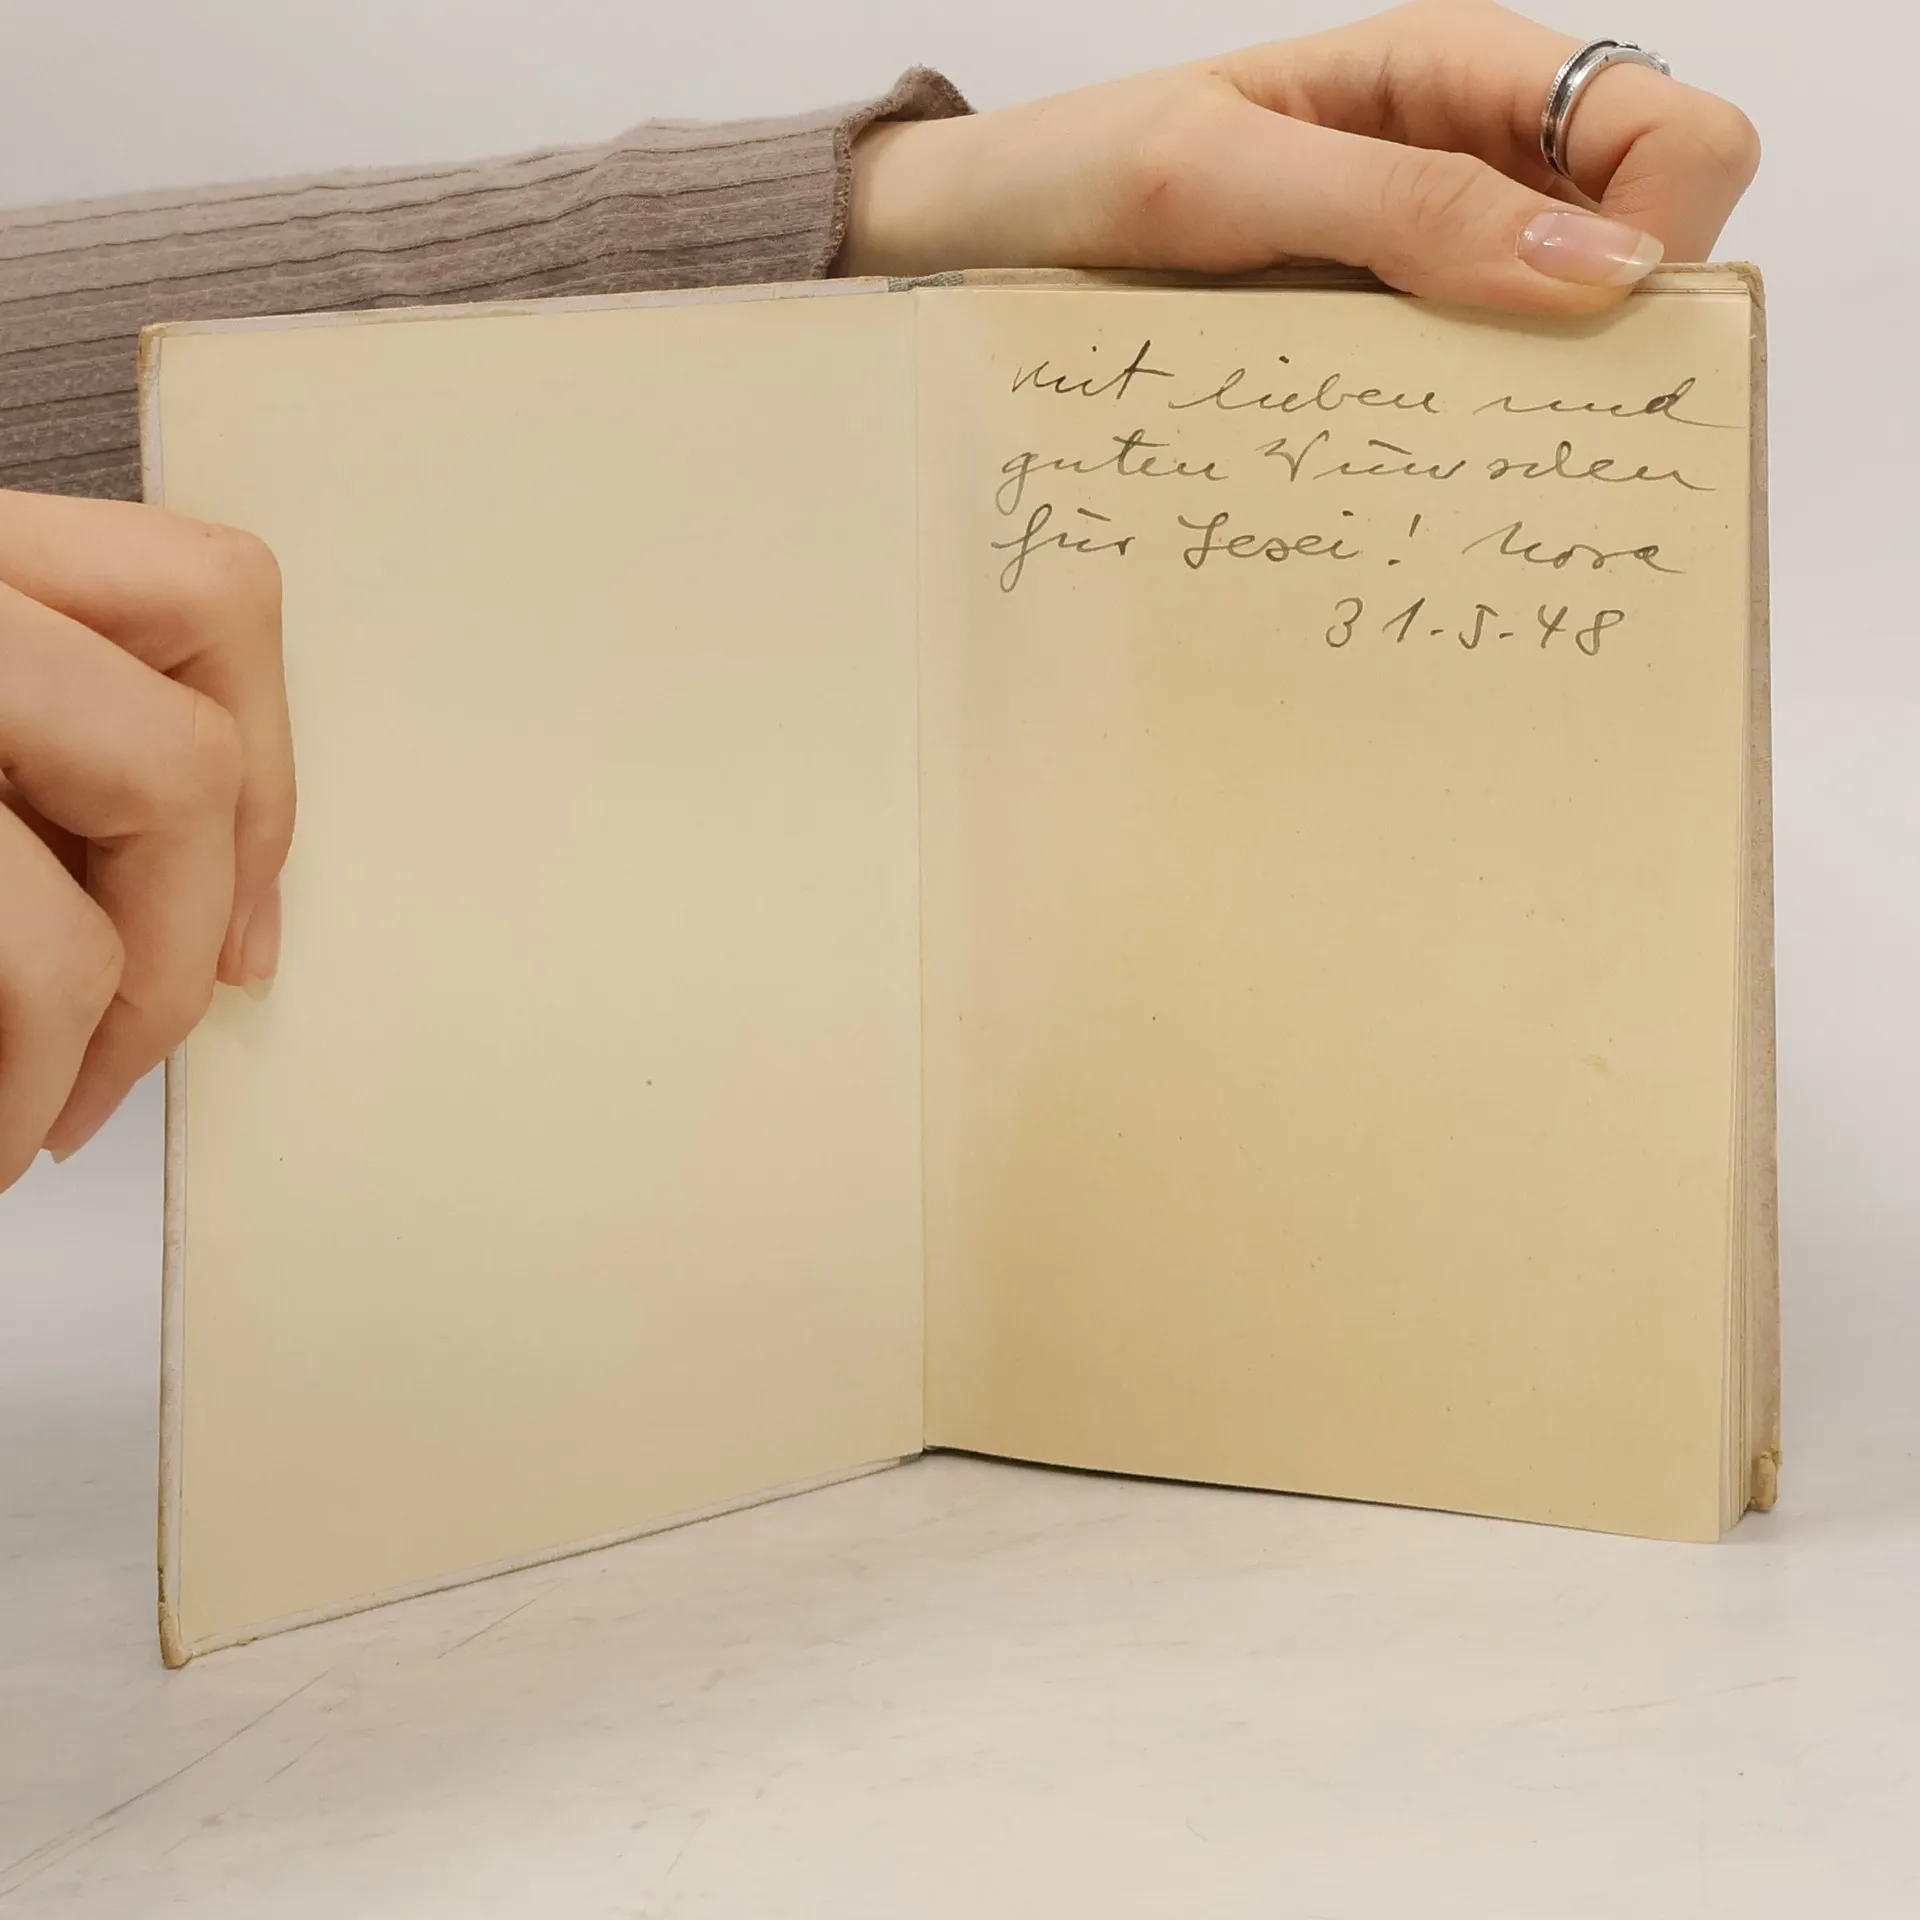 mit lieben und
guten Wünschen
für Lesei! Nora
31.5.48